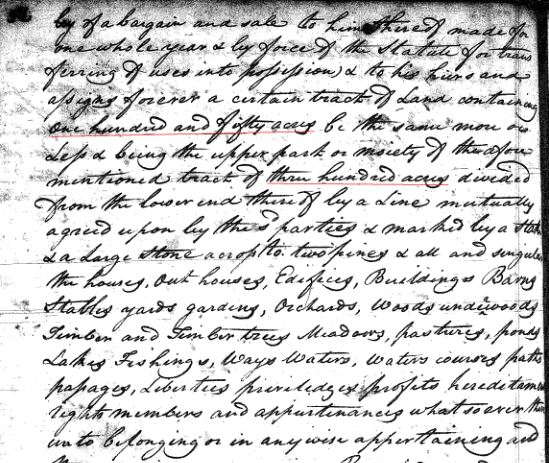 by of a bargain and sale to him thereof made for
one whole year & by force of the Statute for trans
ferring of uses into possession) & to his hiers and
assigns forever a certain tract of Land containing
One hundred and fifty acres be the same more or
Less & being the upper part or moiety of the afore
mentioned tract of three hundred acres divided
from the lower end thereof by a Line mutually
agreed upon by the sd parties & marked by a
& a Large Stone across to two pines & all and singular
the houses, Out houses, Edifices, Buildings Barns
Stables yards gardens, Orchards, Woods underwoods
Timber and Timber trees Meadows, pastures, ponds
Lakes Fishings, Ways Waters, Waters courses paths
passages, Liberties priviledges profits heredetamen
rights members and appurtenances whatsoever there
unto belonging or in any wise appertaining and